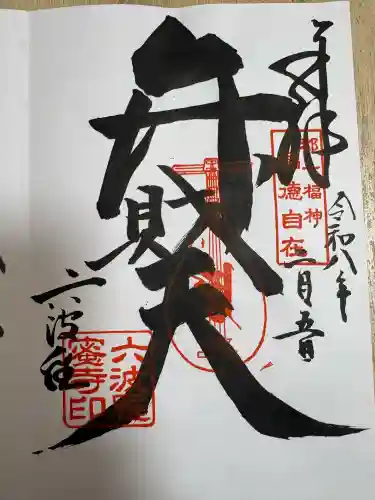 奉拝
令和八年
二月五日
弁財天
六波羅
都一福神
福德自在
六波羅
蜜寺印